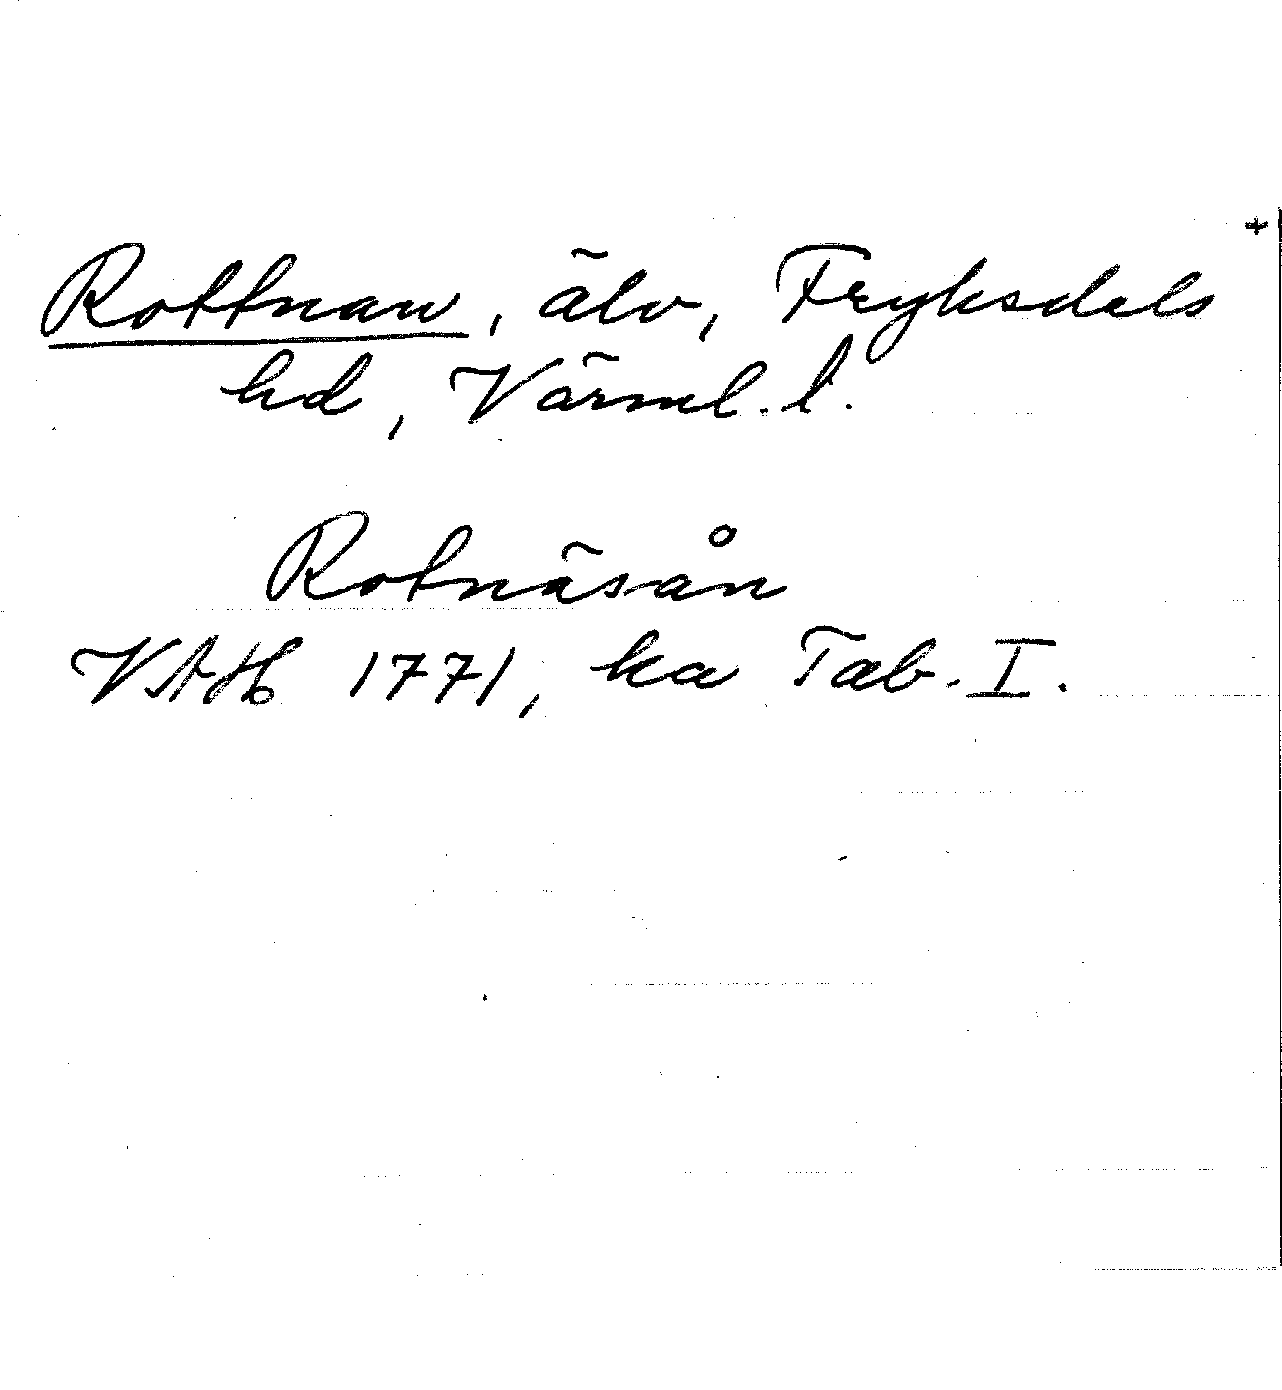 +
Rottnan, älv, Fryksdels
hd, Värml. l.
Rotnäsån
VAH 1771, ka Tab. I.